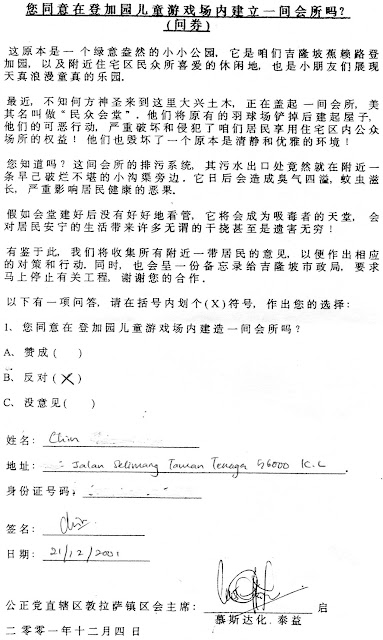 您同意在登加园儿童游戏场内建立一间会所吗?
(问券)
这原本是一个绿意盎然的小小公园，它是咱们吉隆坡蕉赖路登
加园，以及附近住宅区民众所喜爱的休闲地，也是小朋友们展现
天真浪漫童真的乐园.
最近，不知何方神圣来到这里大兴土木，正在盖起一间会所，美
其名叫做"民众会堂". 他们将原有的羽球场铲掉后建起屋子，
他们的可恶行动，严重破坏和侵犯了咱们居民享用住宅区内公众
场所的权益! 他们也毁坏了一个原本是清静和优雅的环境!
您知道吗? 这间会所的排污系统，其污水出口处竟然就在附近一
条早己破烂不堪的小沟渠旁边. 它日后会造成臭气四溢，蚊虫滋
长，严重影响居民健康的恶果.
假如会堂建好后没有好好地看管，它将会成为吸毒者的天堂，会
对居民安宁的生活带来许多无谓的干挠甚至是遗害无穷!
有鉴于此，我们将收集所有附近一带居民的意见，以便作出相应
的对策和行动. 同时，也会呈一份备忘录给吉隆坡市政局，要求
马上停止有关工程，谢谢您的合作.
以下有一项问答，请在括号内划个(X)符号，作出您的选择:
1、您同意在登加园儿童游戏场内建造一间会所吗?
A、赞成( )
B、反对(X)
C、没意见( )
姓名: Chin
地址: Jalan Selimang Taman Tenaga 56000 K.L
身份证号码:
签名:
日期: 21/12/2001
公正党直辖区敦拉萨镇区会主席: 启
慕斯达化.泰益
二零零一年十二月四日